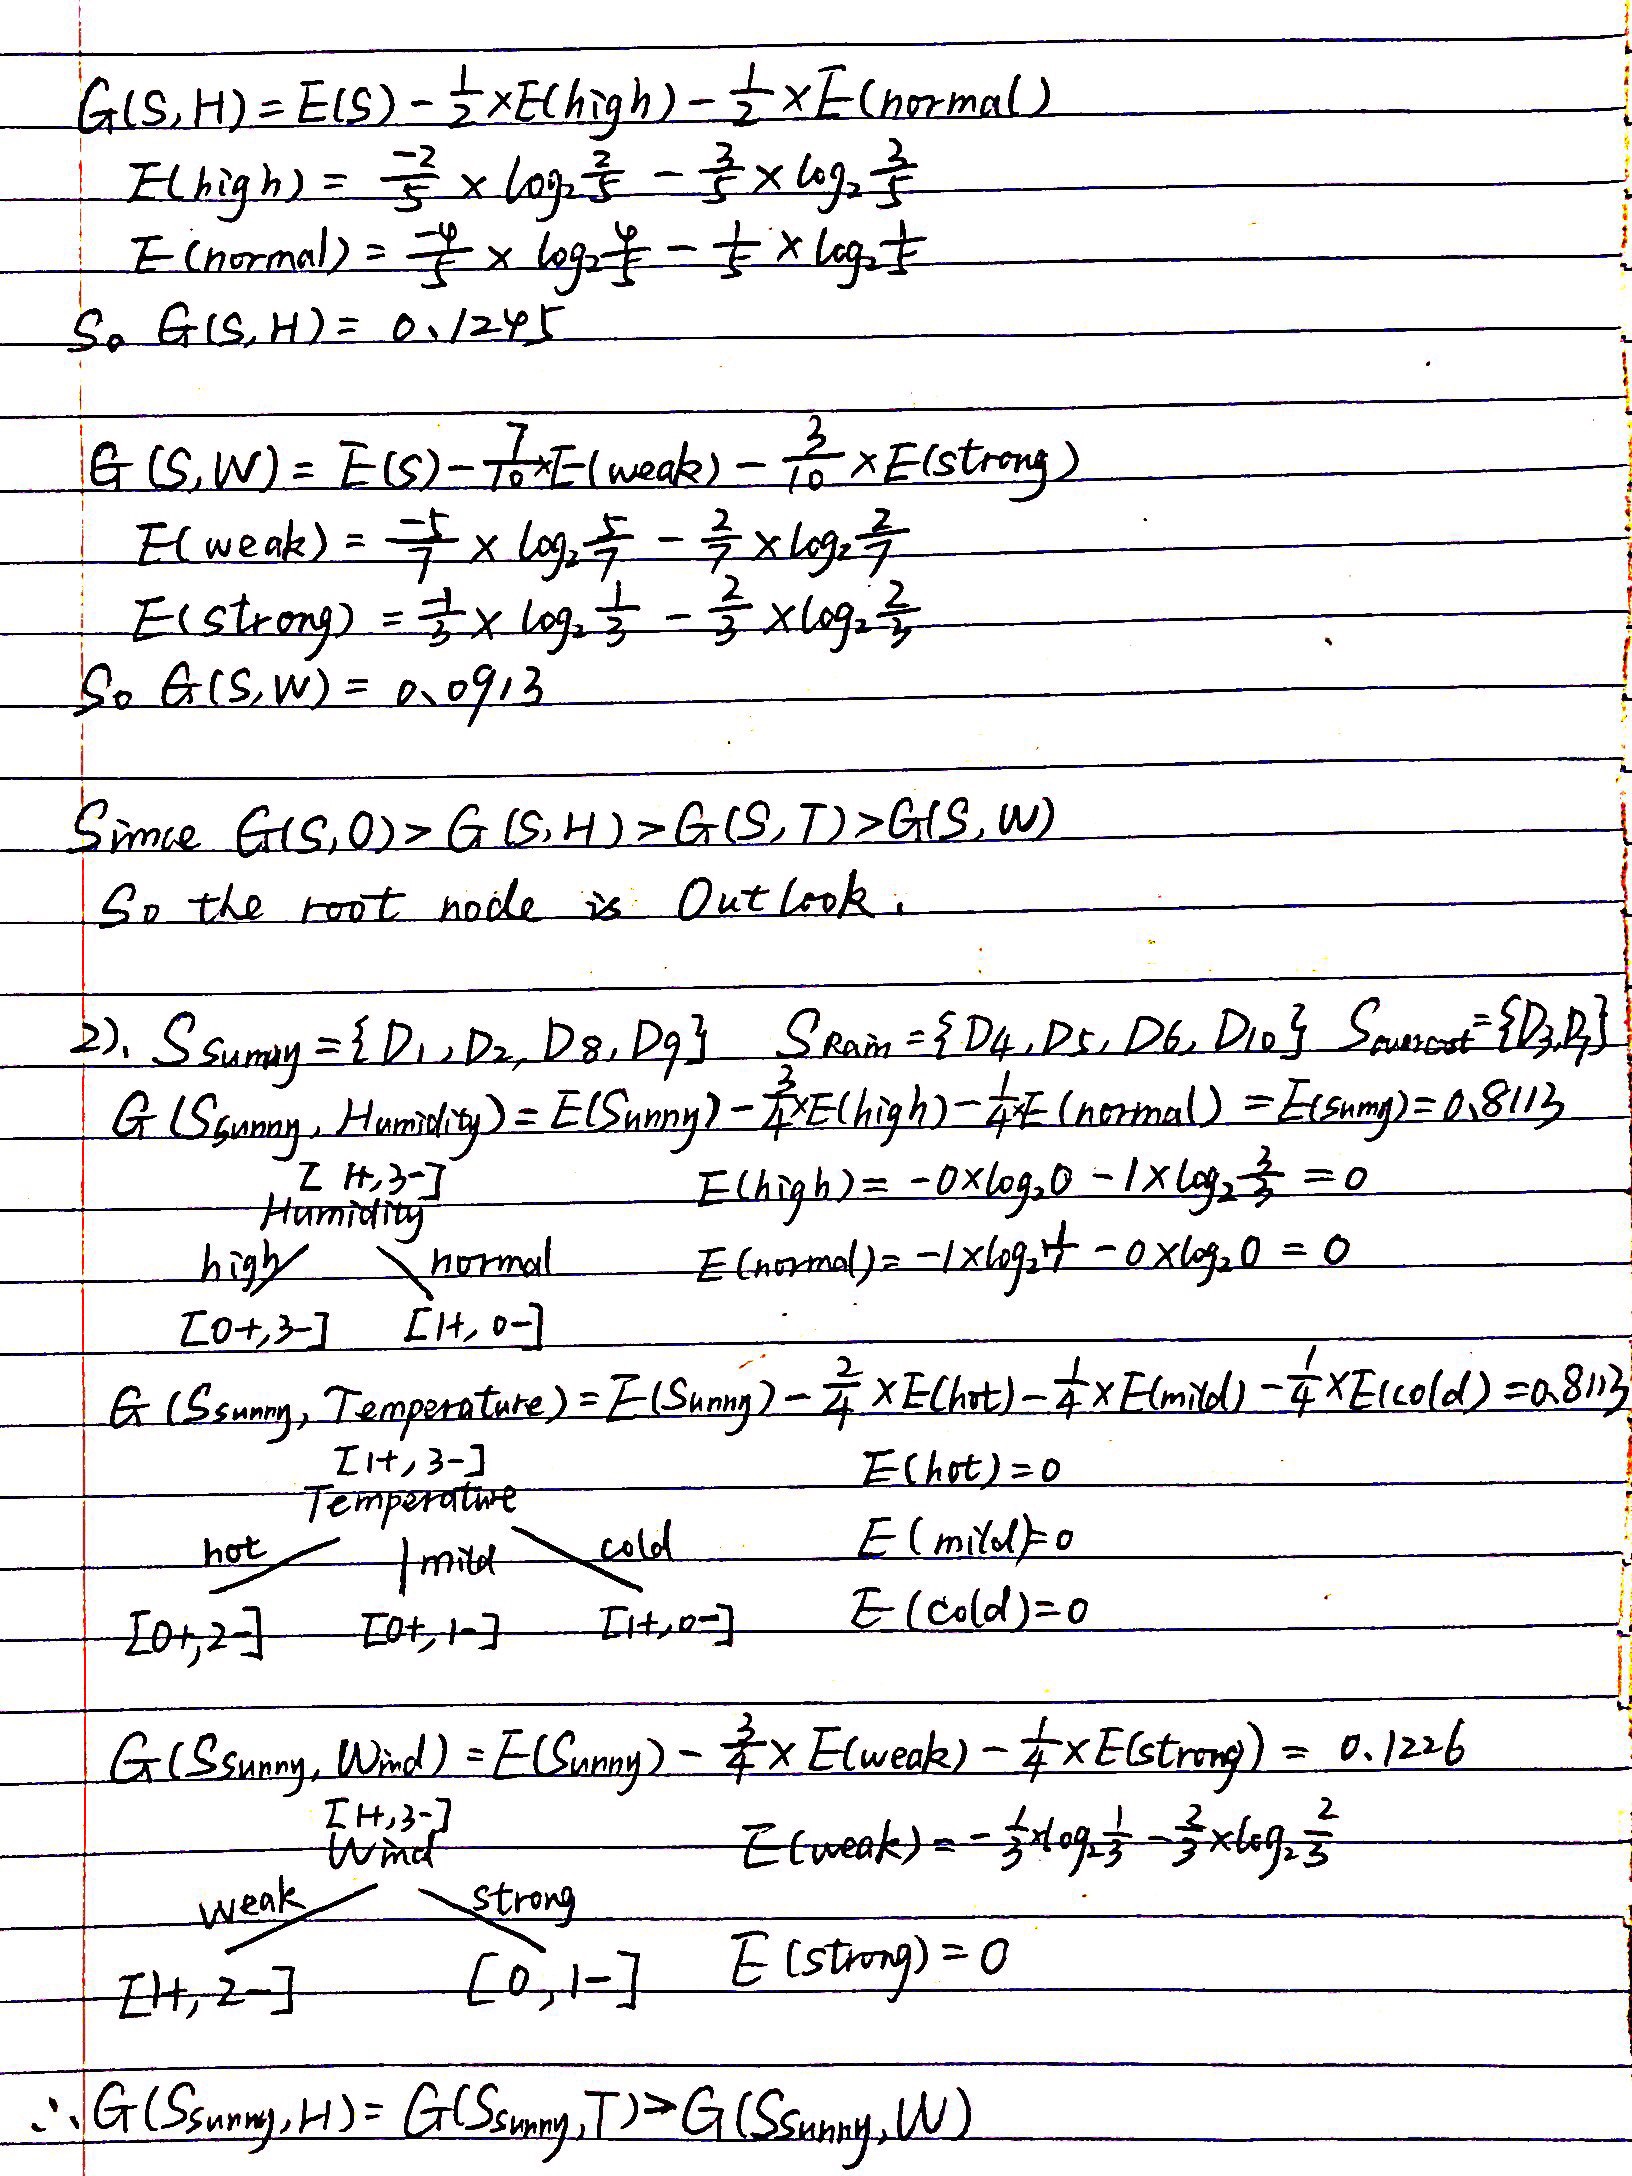 G(S,H) = E(S) - 1/2 × E(high) - 1/2 × E(normal)
E(high) = -2/5 × log₂ 2/5 - 3/5 × log₂ 3/5
E(normal) = -4/5 × log₂ 4/5 - 1/5 × log₂ 1/5
So G(S,H) = 0.1245
G(S,W) = E(S) - 7/10 × E(weak) - 3/10 × E(strong)
E(weak) = -5/7 × log₂ 5/7 - 2/7 × log₂ 2/7
E(strong) = -1/3 × log₂ 1/3 - 2/3 × log₂ 2/3
So G(S,W) = 0.0913
Since G(S,O) > G(S,H) > G(S,T) > G(S,W)
So the root node is Outlook.
2). S Sunny = {D1, D2, D8, D9} S Rain = {D4, D5, D6, D10} S overcast = {D3, D7}
G(S sunny, Humidity) = E(Sunny) - 3/4 × E(high) - 1/4 × E(normal) = E(sunny) = 0.8113
[1+, 3-]
E(high) = -0 × log₂ 0 - 1 × log₂ 3/3 = 0
Humidity
high normal
E(normal) = -1 × log₂ 1/1 - 0 × log₂ 0 = 0
[0+, 3-] [1+, 0-]
G(S sunny, Temperature) = E(Sunny) - 2/4 × E(hot) - 1/4 × E(mild) - 1/4 × E(cold) = 0.8113
[1+, 3-]
E(hot) = 0
Temperature
hot mild cold
E(mild) = 0
[0+, 2-] [0+, 1-] [1+, 0-]
E(cold) = 0
G(S sunny, Wind) = E(Sunny) - 3/4 × E(weak) - 1/4 × E(strong) = 0.1226
[1+, 3-]
Wind
E(weak) = -1/3 × log₂ 1/3 - 2/3 × log₂ 2/3
weak strong
[1+, 2-] [0, 1-]
E(strong) = 0
∴ G(S sunny, H) = G(S sunny, T) > G(S sunny, W)